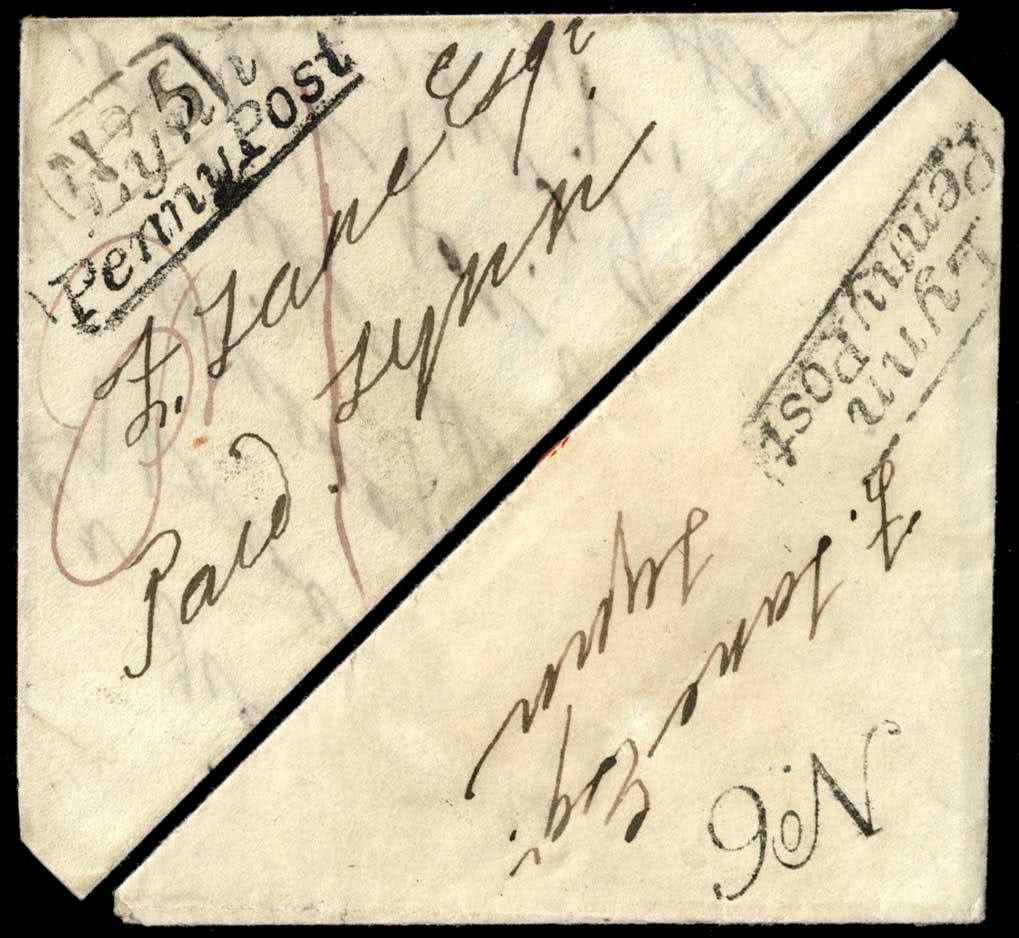 No. 5
Lynn
Penny Post
F. Lane Esqr.
Lynn
Paid.
1
Lynn
Penny Post
F. Lane
Esqr
Lynn
No 6